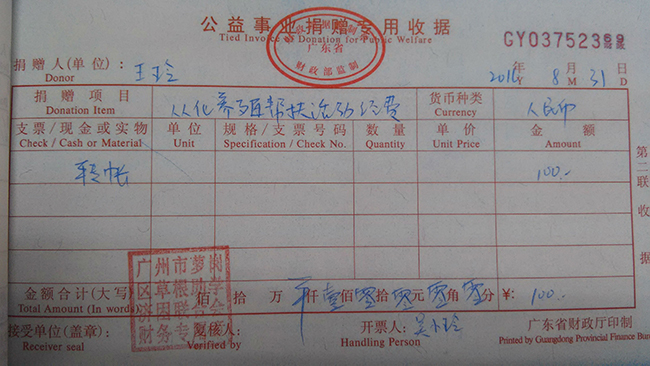 公益事业捐赠专用收据
Tied Invoice of Donation for Public Welfare
广东省
财政部监制
GY03752389
捐赠人(单位): 王玲
Donor
2016年 8月 31日
Y M D
捐赠项目 从化养殖帮扶活动经费 货币种类 人民币
Donation Item Currency
支票/现金或实物 单位 规格/支票号码 数量 单价 金额
Check / Cash or Material Unit Specification / Check No. Quantity Unit Price Amount
转帐 100.-
第二联 收据
广州市萝岗
区草根助学
济困联合会
财务专用章
金额合计(大写) 佰 拾 万 仟 壹佰 零拾 零元 零角 零分 ¥: 100.-
Total Amount (In words)
接受单位(盖章): 复核人: 开票人: 吴小玲 广东省财政厅印制
Receiver seal Verified by Handling Person Printed by Guangdong Provincial Finance Bureau